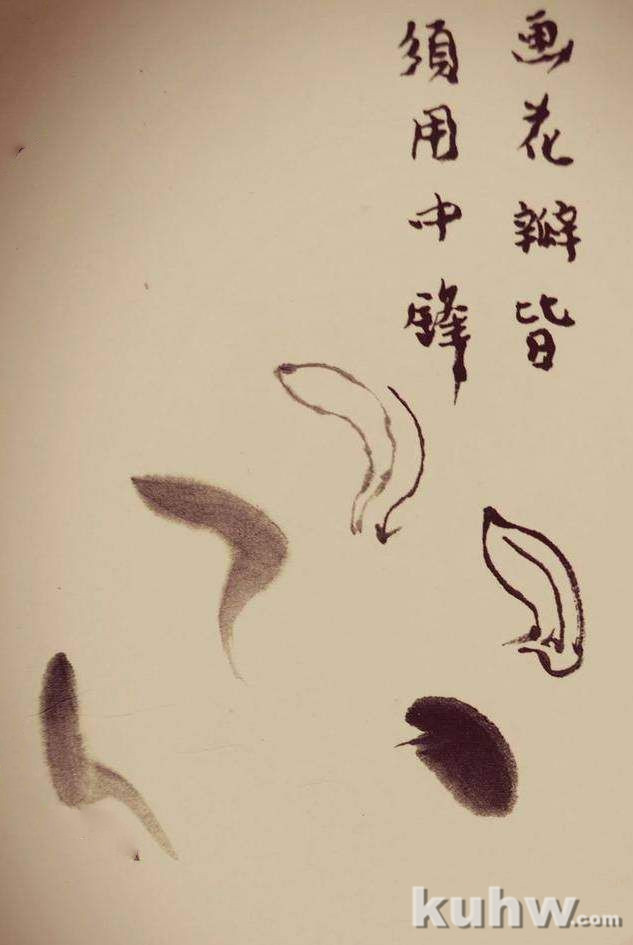 画花瓣皆
須用中鋒
kuhw.com